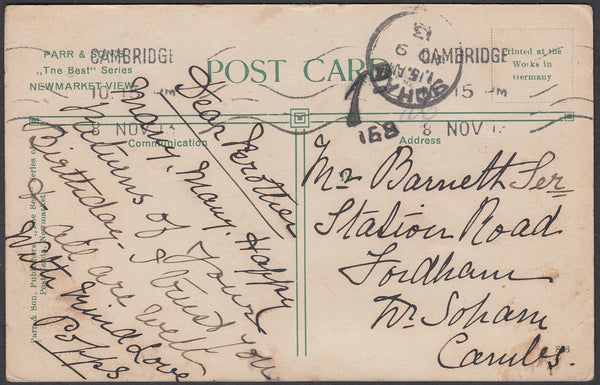 PARR & SON'S
„The Best” Series
NEWMARKET VIEW
POST CARD
Printed at the
Works in
Germany
CAMBRIDGE
10-15
8 NOV 13
CAMBRIDGE
15
8 NOV 13
SOHAM
1.15 AM
NO 9
13
1
B91
Communication
Address
Dear Brother
Many, Many, Happy
returns of Your
Birthday. I trust you
all are well
With kind Love
Popps
Mr Barnett Ser
Station Road
Fordham
Nr. Soham
Cambs.
Parr & Son, Publishers, „The Best” Series of
Postcards, Newmarket